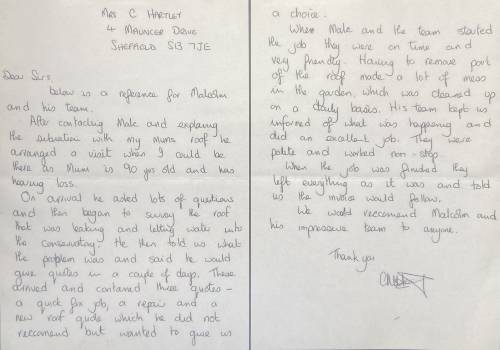 Mrs C Hartley
4 Maunder Drive
Sheffield S13 7JE
Dear Sirs,
below is a reference for Malcolm
and his team.
After contacting Malc and explaing
the situation with my Mums roof he
arranged a visit when I could be
there as Mum is 90 yrs old and has
hearing loss.
On arrival he asked lots of questions
and then began to survey the roof
that was leaking and letting water into
the conservatory. He then told us what
the problem was and said he would
give quotes in a couple of days. These
arrived and contained three quotes -
a quick fix job, a repair and a
new roof quote which he did not
reccomend but wanted to give us
a choice.
When Malc and the team started
the job they were on time and
very friendly. Having to remove part
of the roof made a lot of mess
in the garden, which was cleaned up
on a daily basis. His team kept us
informed of what was happening and
did an excellent job. They were
polite and worked non-stop.
When the job was finished they
left everything as it was and told
us the invoice would follow.
We would reccomend Malcolm and
his impressive team to anyone.
Thank you